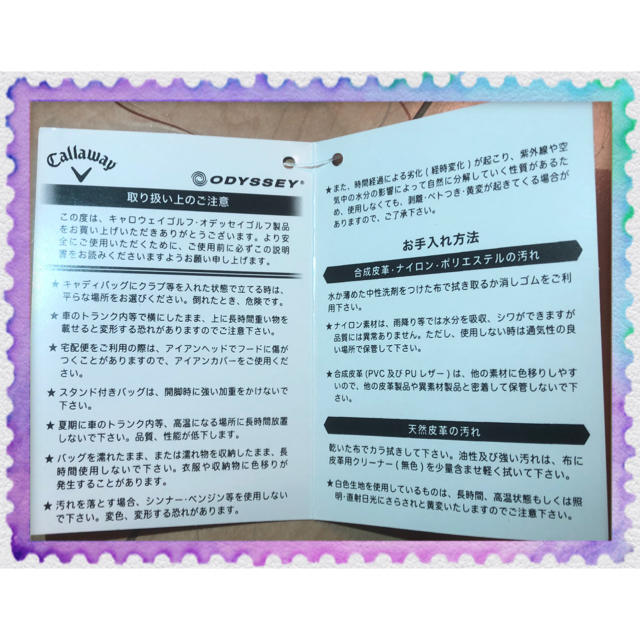 Callaway
ODYSSEY®
取り扱い上のご注意
この度は、キャロウェイゴルフ・オデッセイゴルフ製品
をお買い上げいただきありがとうございます。より安
全にご使用いただくために、ご使用前に必ずこの説明
書をお読みくださいますようお願い申し上げます。
★キャディバッグにクラブ等を入れた状態で立てる時は、
平らな場所をお選びください。倒れたとき、危険です。
★車のトランク内等で横にしたまま、上に長時間重い物を
載せると変形する恐れがありますのでご注意下さい。
★宅配便をご利用の際は、アイアンヘッドでフードに傷が
つくことがありますので、アイアンカバーをご使用くだ
さい。
★スタンド付きバッグは、開脚時に強い加重をかけないで
下さい。
★夏期に車のトランク内等、高温になる場所に長時間放置
しないで下さい。品質、性能が低下します。
★バッグを濡れたまま、または濡れ物を収納したまま、長
時間使用しないで下さい。衣服や収納物に色移りが
発生することがあります。
★汚れを落とす場合、シンナー・ベンジン等を使用しない
で下さい。変色、変形する恐れがあります。
★また、時間経過による劣化(経時変化)が起こり、紫外線や空
気中の水分の影響によって自然に分解していく性質があるた
め、使用しなくても、剥離・ベトつき・黄変が起きてくる場合が
ありますので、ご了承下さい。
お手入れ方法
合成皮革・ナイロン・ポリエステルの汚れ
水か薄めた中性洗剤をつけた布で拭き取るか消しゴムをご利
用下さい。
★ナイロン素材は、雨降り等では水分を吸収、シワができますが
品質には異常ありません。ただし、使用しない時は通気性の良
い場所で保管して下さい。
★合成皮革(PVC及びPUレザー)は、他の素材に色移りしやす
いので、他の皮革製品や異素材製品と密着して保管しないで下
さい。
天然皮革の汚れ
乾いた布でカラ拭きして下さい。油性及び強い汚れは、布に
皮革用クリーナー(無色)を少量含ませ軽く拭いて下さい。
★白色生地を使用しているものは、長時間、高温状態もしくは照
明・直射日光にさらされと黄変いたしますのでご注意下さい。